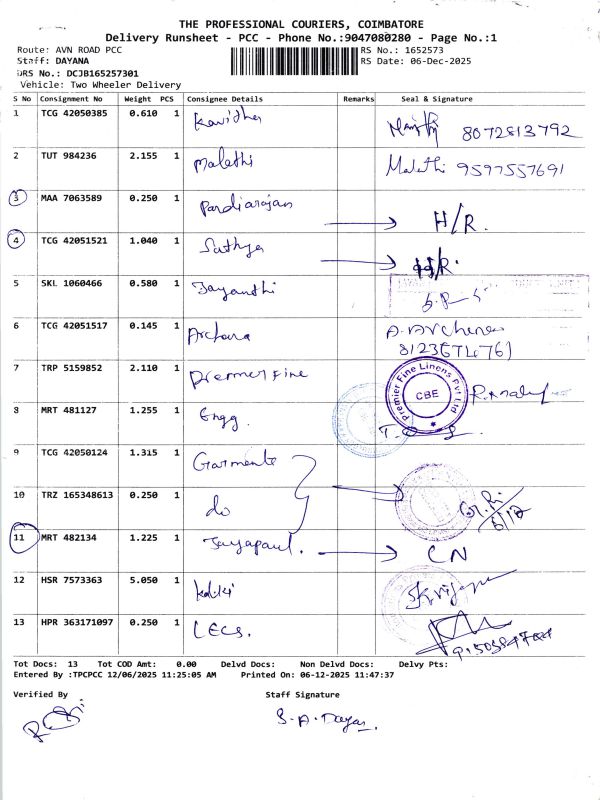 THE PROFESSIONAL COURIERS, COIMBATORE
Delivery Runsheet - PCC - Phone No.:9047080280 - Page No.:1
Route: AVN ROAD PCC RS No.: 1652573
Staff: DAYANA RS Date: 06-Dec-2025
DRS No.: DCJB165257301
Vehicle: Two Wheeler Delivery
S No Consignment No Weight PCS Consignee Details Remarks Seal & Signature
1 TCG 42050385 0.610 1 Kavitha 8072813792
2 TUT 984236 2.155 1 Malathi Malathi 9597557691
3 MAA 7063589 0.250 1 Pandiarajan H/R.
4 TCG 42051521 1.040 1 Sathya H/R.
5 SKL 1060466 0.580 1 Jayanthi
6 TCG 42051517 0.145 1 Archana A. Archana
8123674761
7 TRP 5159852 2.110 1 Premier Fine Premier Fine Linens Pvt Ltd CBE
8 MRT 481127 1.255 1 Engg.
9 TCG 42050124 1.315 1 Garments
10 TRZ 165348613 0.250 1 do 6/12
11 MRT 482134 1.225 1 Jayapaul. CN
12 HSR 7573363 5.050 1
13 HPR 363171097 0.250 1 LECS.
Tot Docs: 13 Tot COD Amt: 0.00 Delvd Docs: Non Delvd Docs: Delvy Pts:
Entered By :TPCPCC 12/06/2025 11:25:05 AM Printed On: 06-12-2025 11:47:37
Verified By Staff Signature
S. A. Dayana